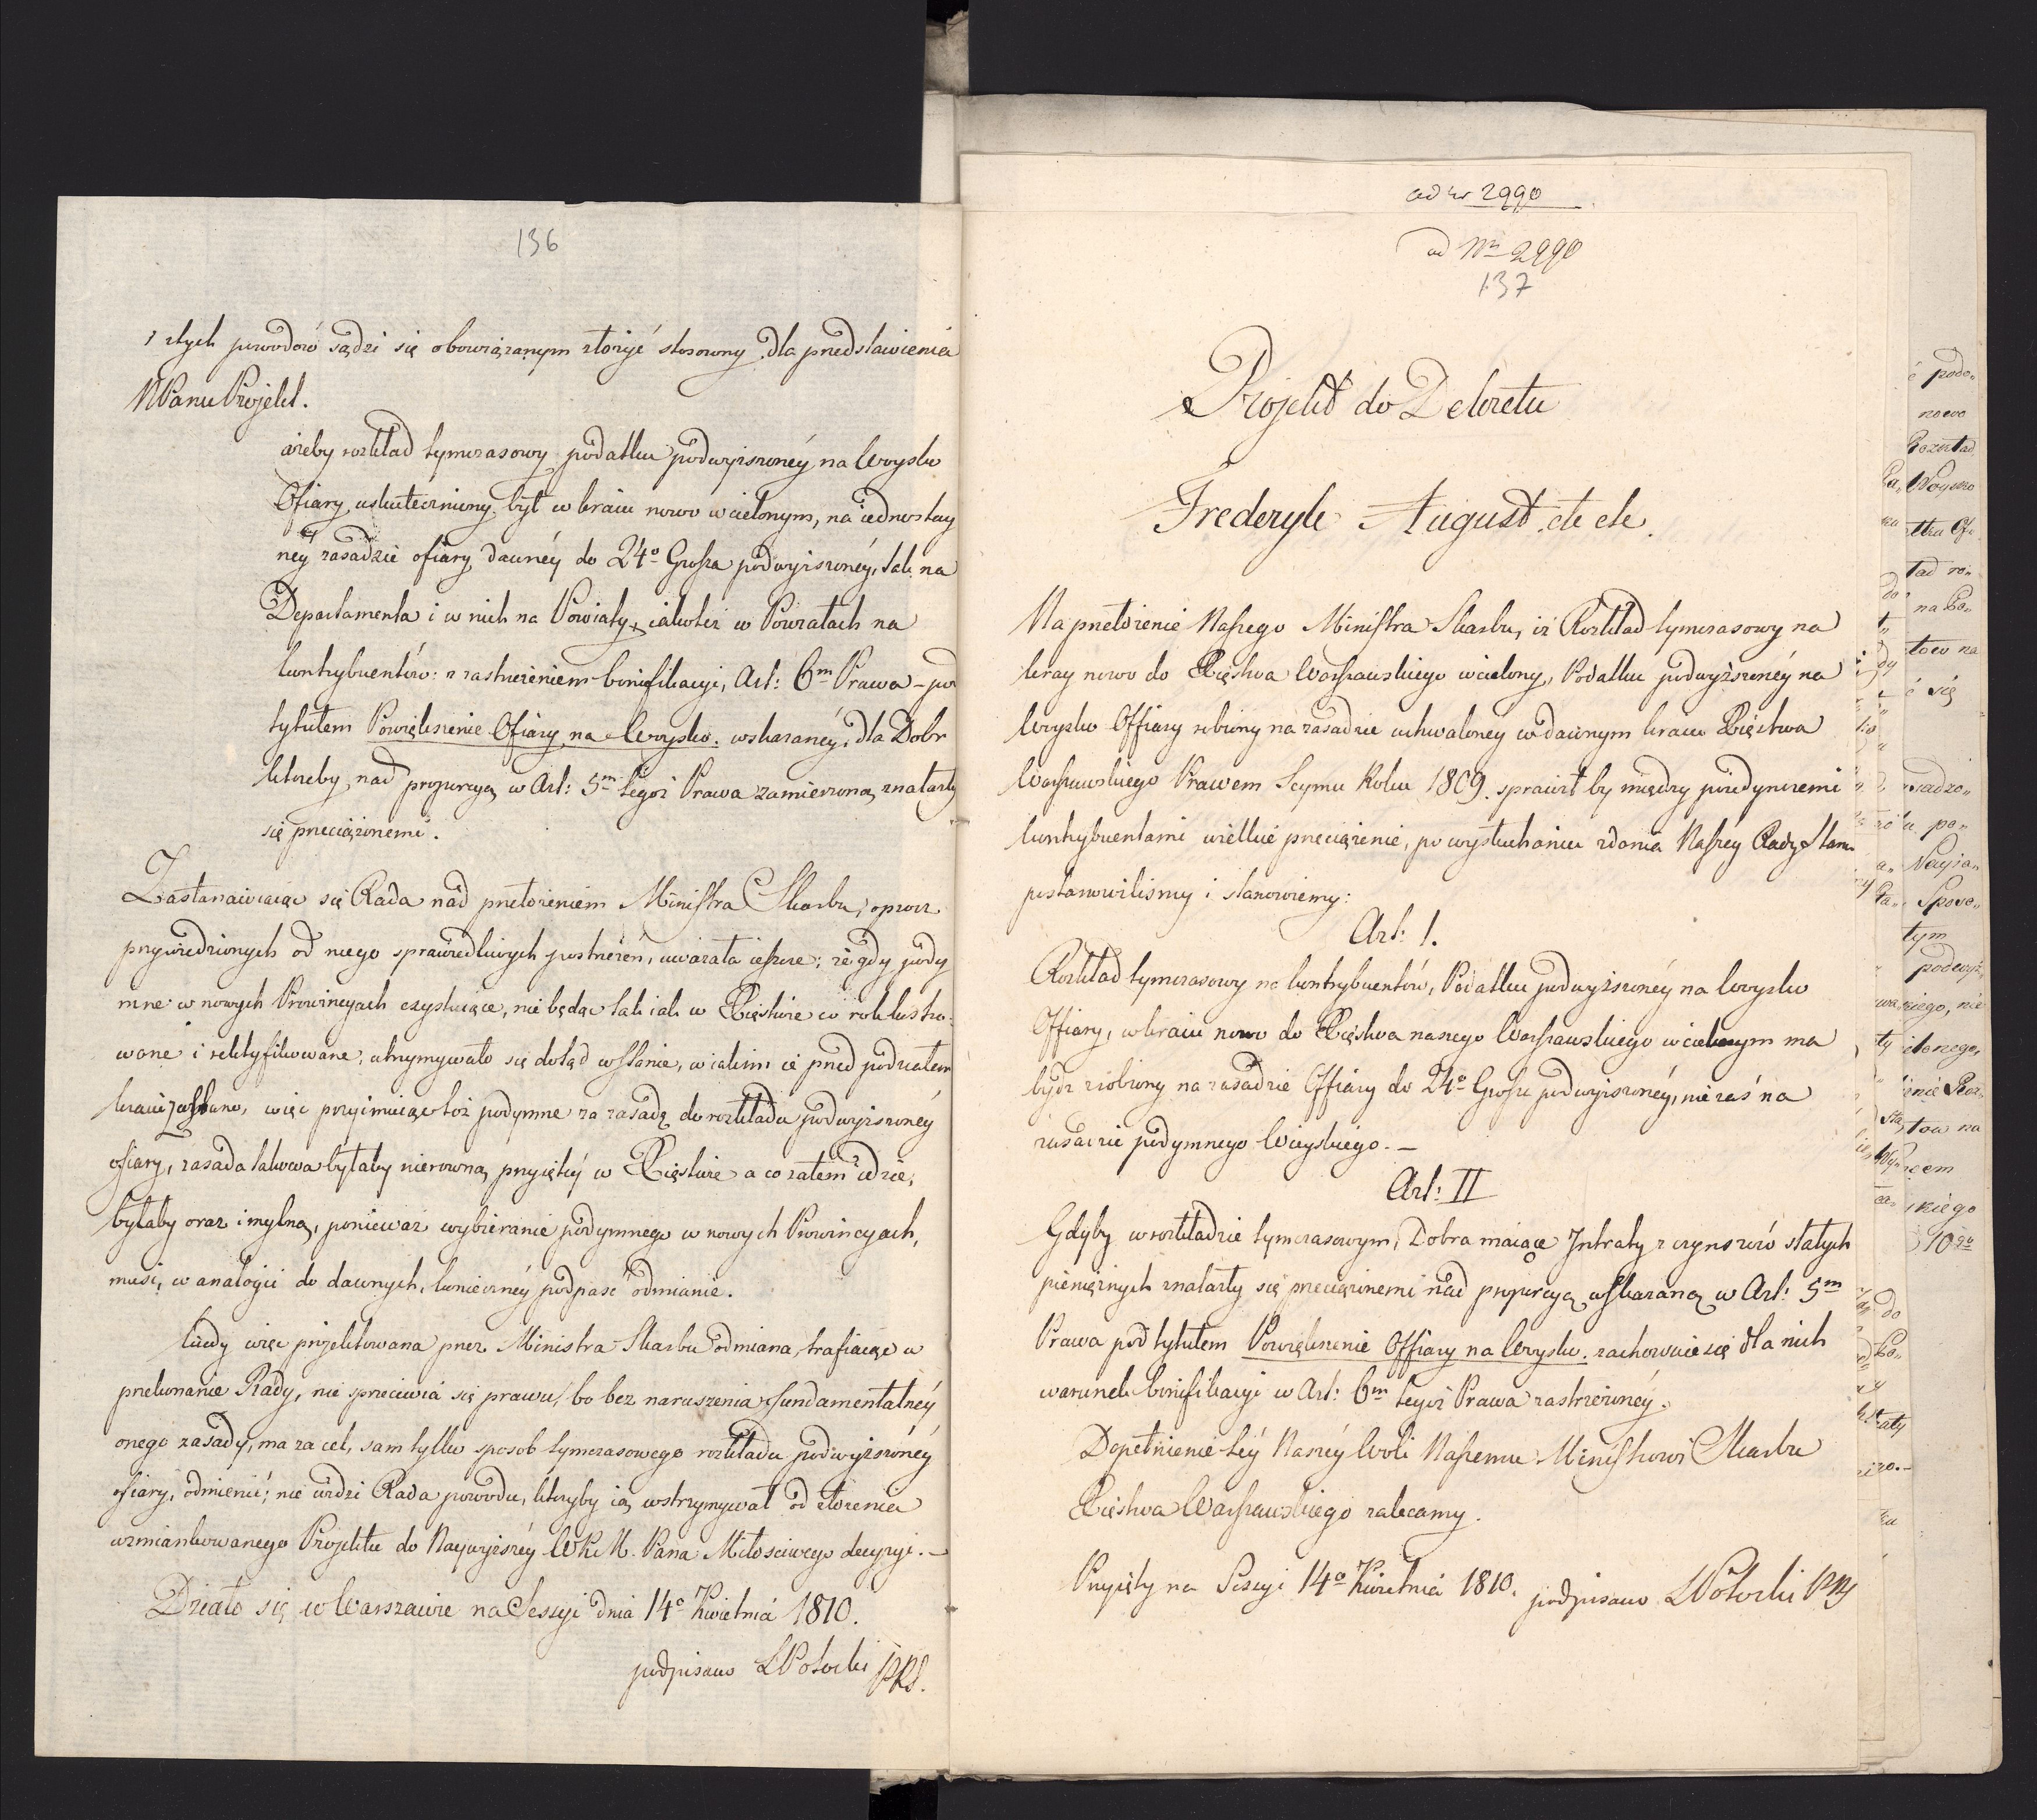 136
i z tych powodów sądzi się obowiązanym złożyć stosowny dla przedstawienia
NPanu Projekt.
ażeby rozkład tymczasowy podatku podwyższonéy na Woysko
Ofiary, uskuteczniony był w kraiu nowo wcielonym, na iednostay
néy zasadzie ofiary dawnéy do 24o Grosza podwyższonéy, tak na
Departamenta i w nich na Powiaty, iakoteż w Powiatach na
kontrybuentów: z zastrzeżeniem bonifikacyi, Art: 6m Prawa - pod
tytułem Powiększenie Ofiary na Woysko. wskazanéy, dla Dobr
któreby nad proporcyą w Art: 5m tegoż Prawa zamierzoną znalazły
się przeciążonemi.
Zastanawiaiąc się Rada nad przełożeniem Ministra Skarbu, oprocz
przywiedzionych od niego sprawiedliwych postrzeżeń, uważała ieszcze; że gdy pody
mne w nowych Prowincyach exystuiące, nie będąc tak iak w Xięstwie co rok lustro-
wane i rektyfikowane, utrzymywało się dotąd w stanie, w iakim ie przed podziałem
kraiu zastano, więc przyimuiąc toż podymne za zasadę do rozkładu podwyższonéy
ofiary, zasada takowa byłaby nierowną przyiętéy w Xięstwie a co zatem idzie,
byłaby oraz i mylną, ponieważ wybieranie podymnego w nowych Prowincyach,
musi, w analogii do dawnych, konieczney podpaść odmianie.
Kiedy więc projektowana przez Ministra Skarbu odmiana, trafiaiąc w
przekonanie Rady, nie sprzeciwia się prawu, bo bez naruszenia fundamentalnéy
onego zasady, ma za cel, sam tylko sposob tymczasowego rozkładu podwyższonéy
ofiary, odmienić; nie widzi Rada powodu, któryby ią wstrzymywał od złożenia
wzmiankowanego Projektu do Naywyższéy WKM. Pana Miłosciwego decyzyi. —
Działo się w Warszawie na Sessyi dnia 14o Kwietnia 1810.
podpisano SPotocki PRS.
ad Nr 2990
ad Nr 2990
137
Projekt do Dekretu
Frederyk August etc etc.
Na przełożenie Naszego Ministra Skarbu, iż Rozkład tymczasowy na
kray nowo do Xięstwa Warszawskiego wcielony, Podatku podwyższonéy na
Woysko Offiary robiony na zasadzie uchwaloney w dawnym kraiu Xięstwa
Warszawskiego Prawem Seymu Roku 1809. sprawił by między poiedynczemi
kontrybuentami wielkie przeciążenie, po wysłuchaniu zdania Naszey Rady Stanu
postanowilismy i stanowiemy:
Art: I.
Rozkład tymczasowy na kontrybuentów, Podatku podwyższonéy na Woysko
Offiary, w kraiu nowo do Xięstwa naszego Warszawskiego wcielonym ma
bydź zrobiony na zasadzie Offiary do 24o Grosza podwyższonéy, nie zaś na
zasadzie podymnego Wieyskiego. —
Art: II
Gdyby w rozkładzie tymczasowym, Dobra maiące Intraty z czynszów stałych
pieniężnych znalazły się przeciążonemi nad proporcyą wskazaną w Art: 5m
Prawa pod tytułem Powiększenie Offiary na Woysko. zachowuie się dla nich
warunek bonifikacyi w Art: 6m tegoż Prawa zastrzeżonéy.
Dopełnienie téy Naszéy Woli Naszemu Ministrowi Skarbu
Xięstwa Warszawskiego zalecamy.
Przyięty na Sessyi 14o Kwietnia 1810. podpisano SPotocki PRS